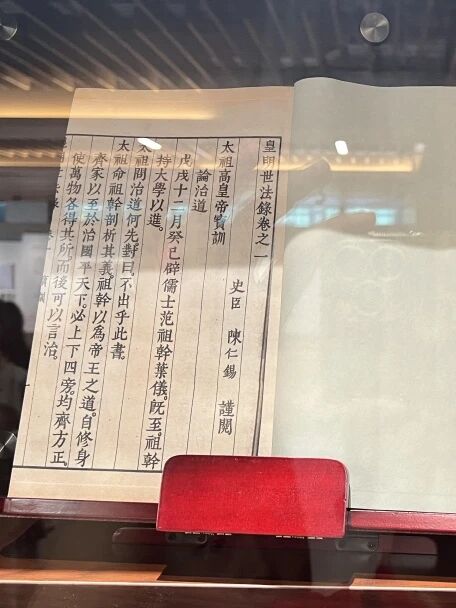 皇明世法錄卷之一
史臣 陳仁錫 謹閱
太祖高皇帝寶訓
論治道
戊戌十二月癸巳辟儒士范祖幹葉儀。既至。祖幹
持大學以進。
太祖問治道何先對曰。不出乎此書。
太祖命祖幹剖析其義祖幹以爲帝王之道。自修身
齊家以至於治國平天下。必上下四旁。均齊方正。
使萬物各得其所而後可以言治。